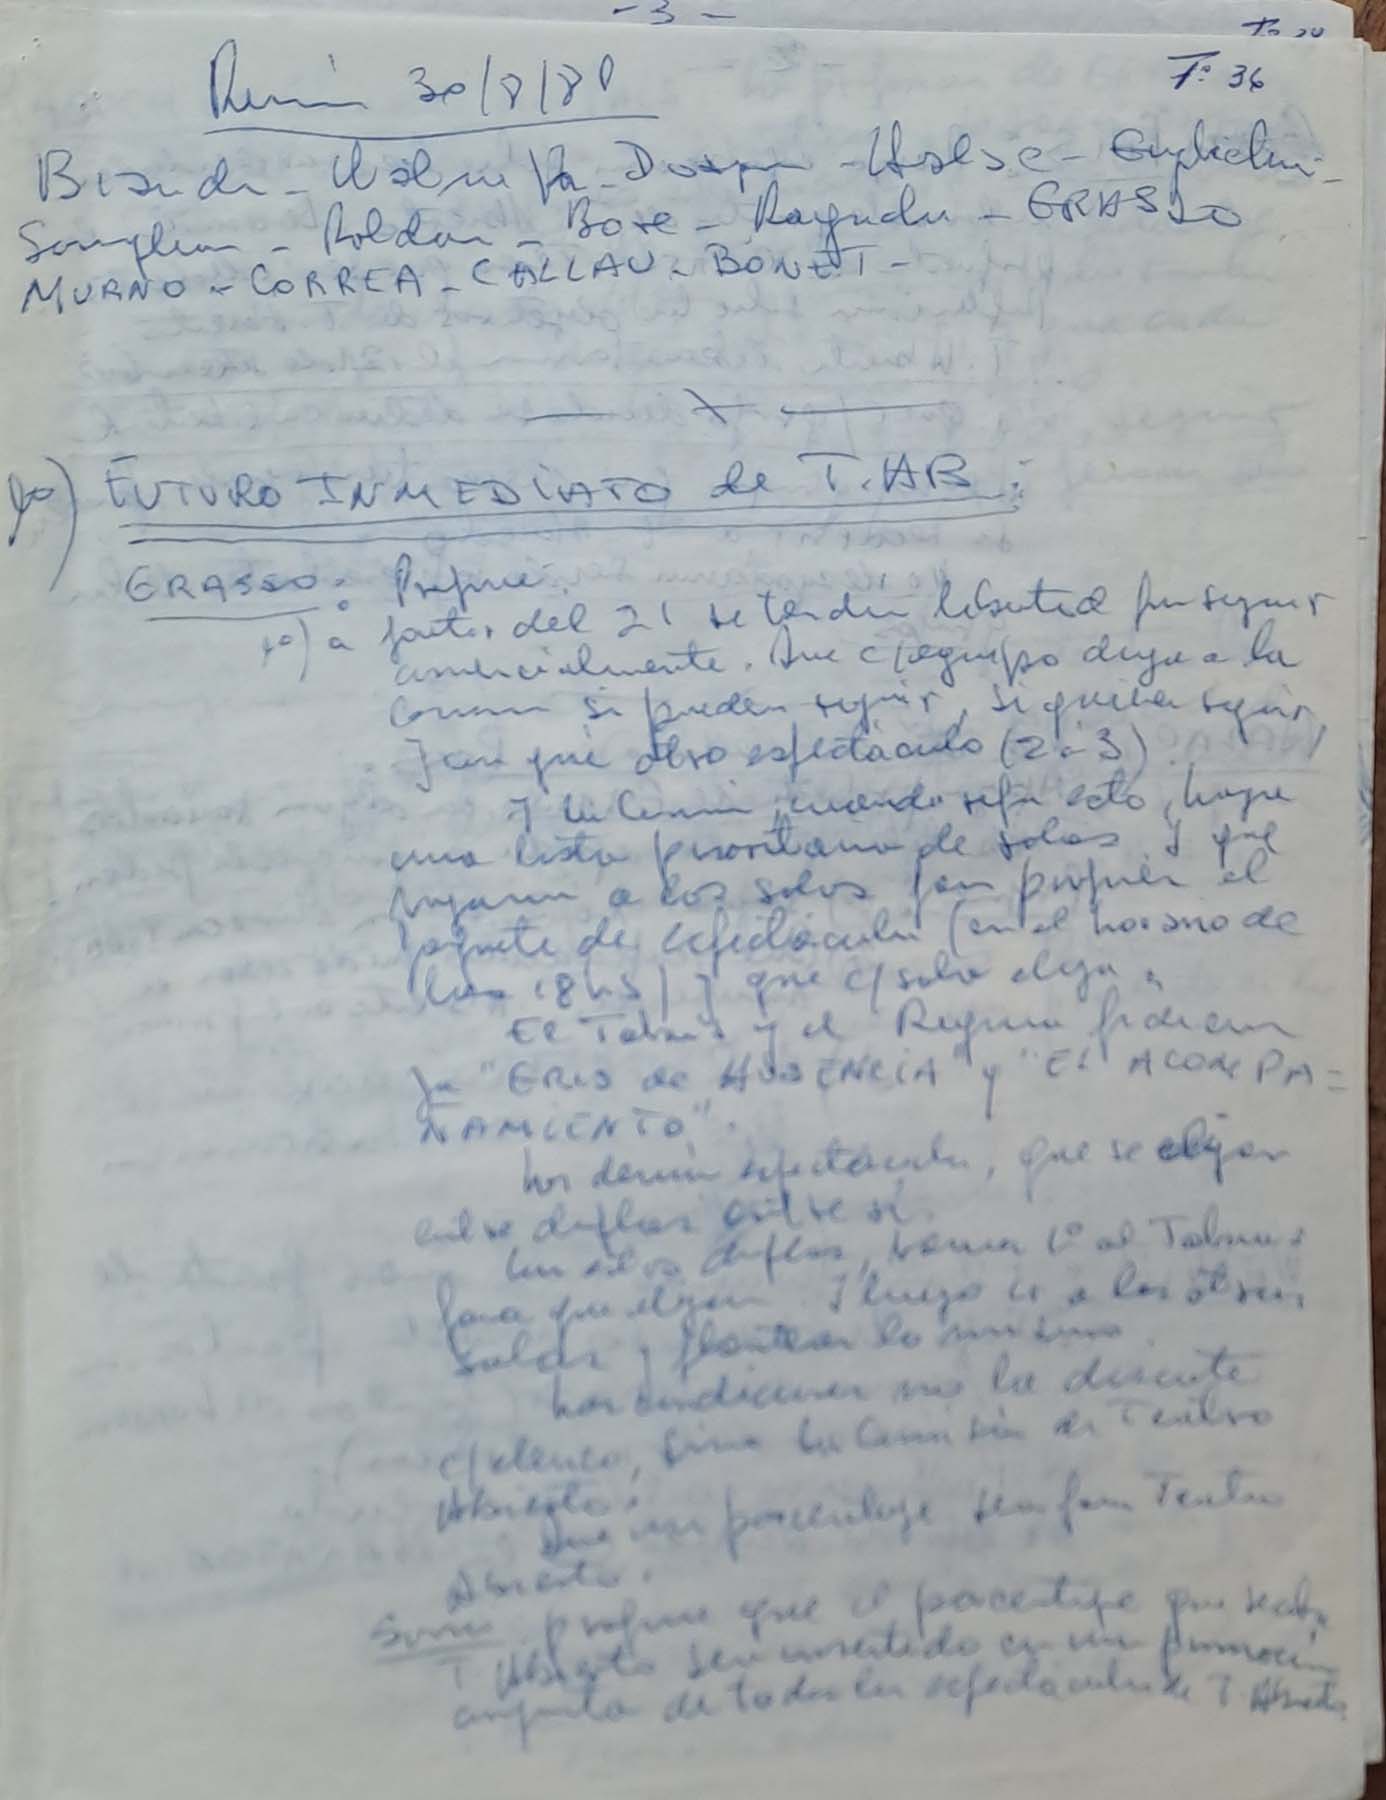 - 3 -
Tº 36
Reunión 30/8/81
Brandi - - Halac -
- Roldán - Bove - Raznadu - GRASSO
MURNO - CORREA - CALLAU - BONET -
FUTURO INMEDIATO de T. AB :
GRASSO: Propone:
1º) a partir del 21 se tendrá libertad para seguir
comercialmente. Que c/equipo diga a la
Comisión si pueden seguir, si quieren seguir,
y con qué otro espectáculo (2 o 3)
Y la Comisión, cuando sepa esto, haga
una lista prioritaria de salas y que
vayamos a las salas para proponer el
paquete de espectáculos (en el horario de
las 18 hs) y que c/ sala elija.
El Tabarís y el Regina pidieron
ya "GRIS de AUSENCIA" y "EL ACOMPA=
ÑAMIENTO".
Los demás espectáculos, que se elijan
entre duplas entre sí.
Con estas duplas, vamos 1º al Tabarís
para que elijan. Y luego ir a las otras
salas y plantear lo mismo.
Las condiciones no las discute
c/elenco, sino la Comisión de Teatro
Abierto.
Que un porcentaje sea para Teatro
Abierto.
propone que el porcentaje que reciba
T. Abierto sea invertido en una promoción
conjunta de todos los espectáculos de T. Abierto